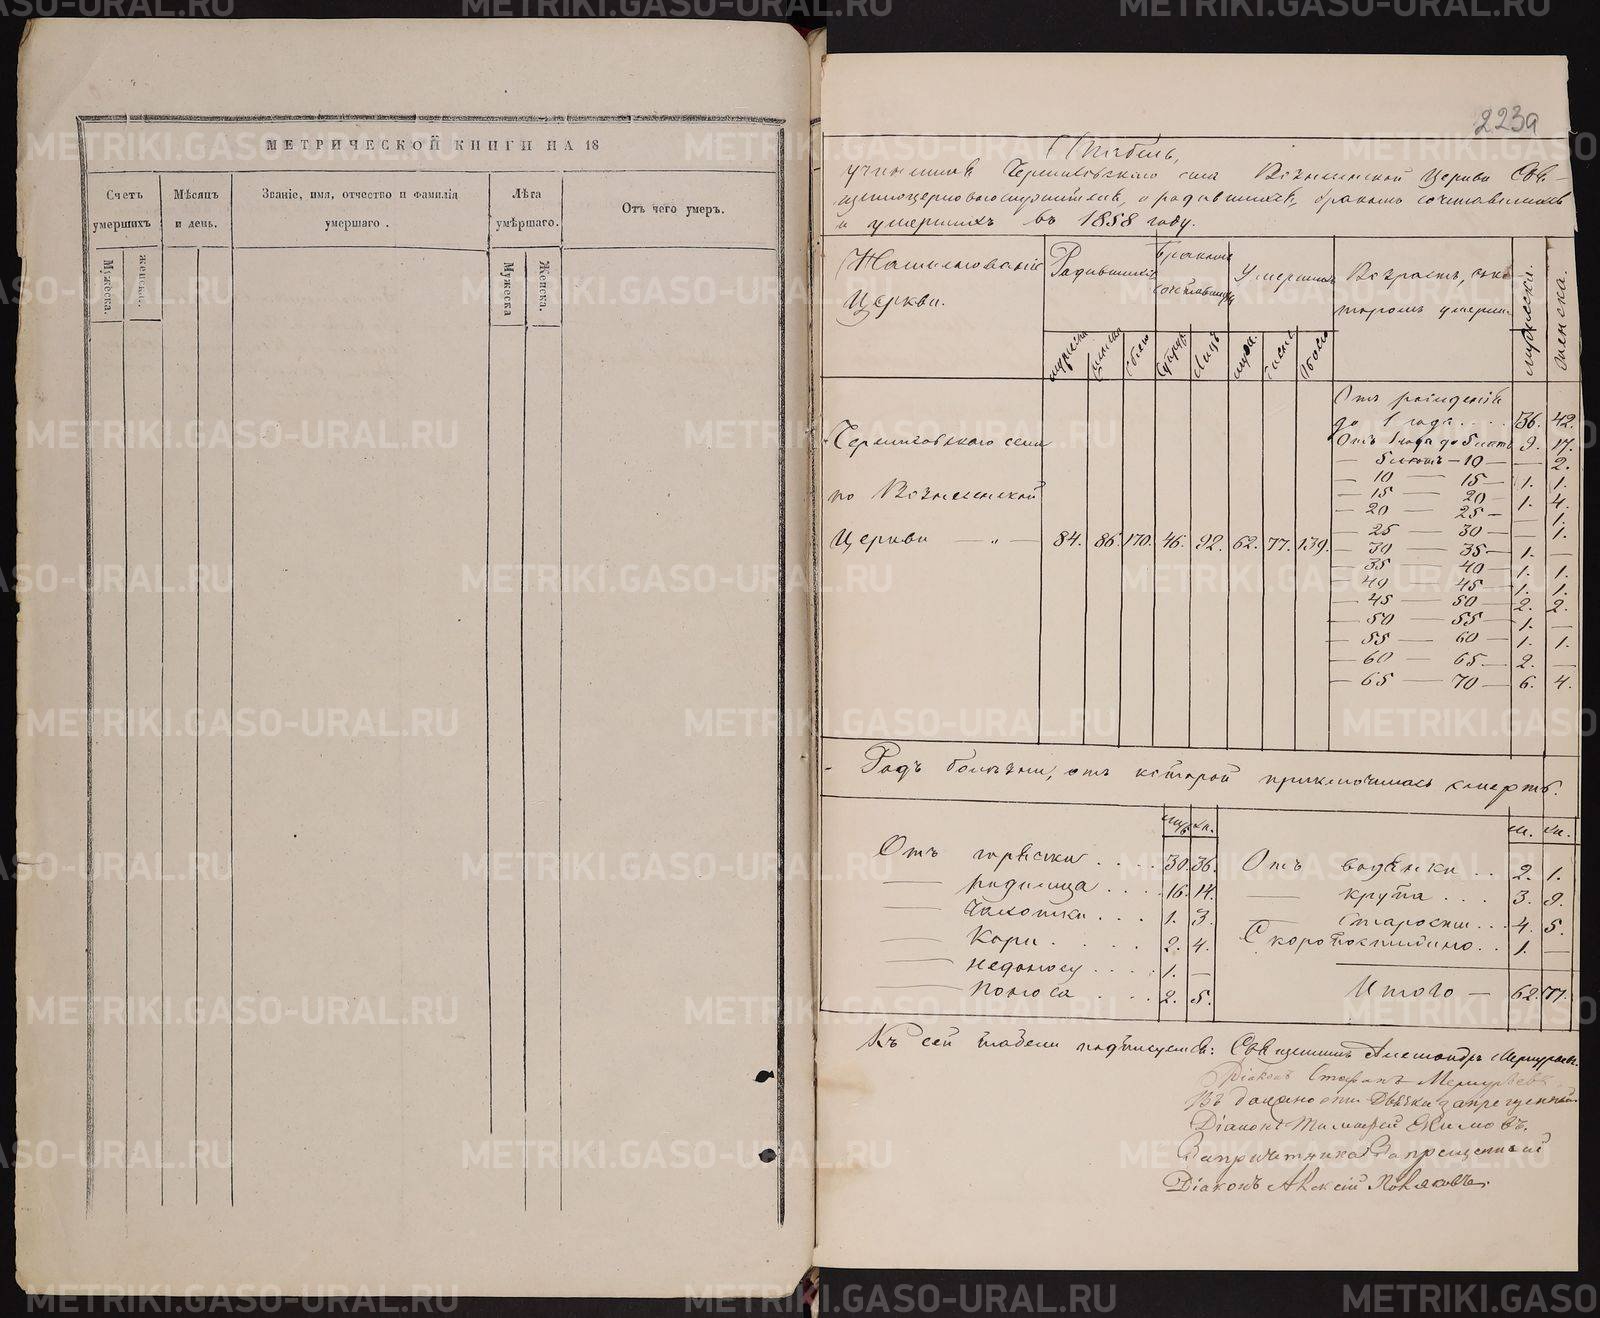 МЕТРИЧЕСКОЙ КНИГИ НА 18
Счетъ умершихъ
Мѣсяцъ и день.
Званіе, имя, отчество и фамилія умершаго.
Лѣта умѣршаго.
Отъ чего умеръ.
Мужеска.
женска.
Мужеска
Женска.
223а
Табель,
учиненная Черниговскаго села Вознесенской Церкви Свя-
щенноцерковнослужителями, о родившихся, бракомъ сочетавшихся
и умершихъ въ 1858 году.
Наименованіе Церкви.
Родившихся
Бракомъ сочетавшихся
Умершихъ
Возрастъ, въ которомъ умерли
мужеска.
женска.
мужеска
женска
Обоего
Супруж.
Лицъ
муж.
женск.
Обоего
Черниговскаго села
по Вознесенской
Церкви — „ — 84. 86. 170. 46. 92. 62. 77. 139.
Отъ рожденія
до 1 года . . . . 36. 42.
Отъ 1 года до 5 лѣтъ 9. 17.
— 5 лѣтъ — 10 — — 2.
— 10 — 15 — 1. 1.
— 15 — 20 — 1. 4.
— 20 — 25 — — 1.
— 25 — 30 — — 1.
— 30 — 35 — 1. —
— 35 — 40 — 1. 1.
— 40 — 45 — 1. 1.
— 45 — 50 — 2. 2.
— 50 — 55 — 1. —
— 55 — 60 — 1. 1.
— 60 — 65 — 2. —
— 65 — 70 — 6. 4.
Родъ болѣзни, отъ которой приключилась смерть.
муж. жн.
Отъ горячки . . . . 30. 36.
— родимца . . . . 16. 14.
— Чахотки . . . 1. 3.
— Кори . . . . 2. 4.
— недоносу . . . . 1. —
— Поноса . . . 2. 5.
м. жн.
Отъ водянки . . 2. 1.
— крупа . . . 3. 9.
— Старости . . . 4. 5.
Скоропостижно . . 1. —
Итого — 62. 77.
Къ сей табели подписуемся: Священникъ Александръ Меркурьевъ.
Діаконъ Стефанъ Меркурьевъ
Въ должности Дьячка запрещенный
Діаконъ Тимофей Якимовъ.
Запричетника Запрещенный
Діаконъ Алексій Поляковъ.
METRIKI.GASO-URAL.RU